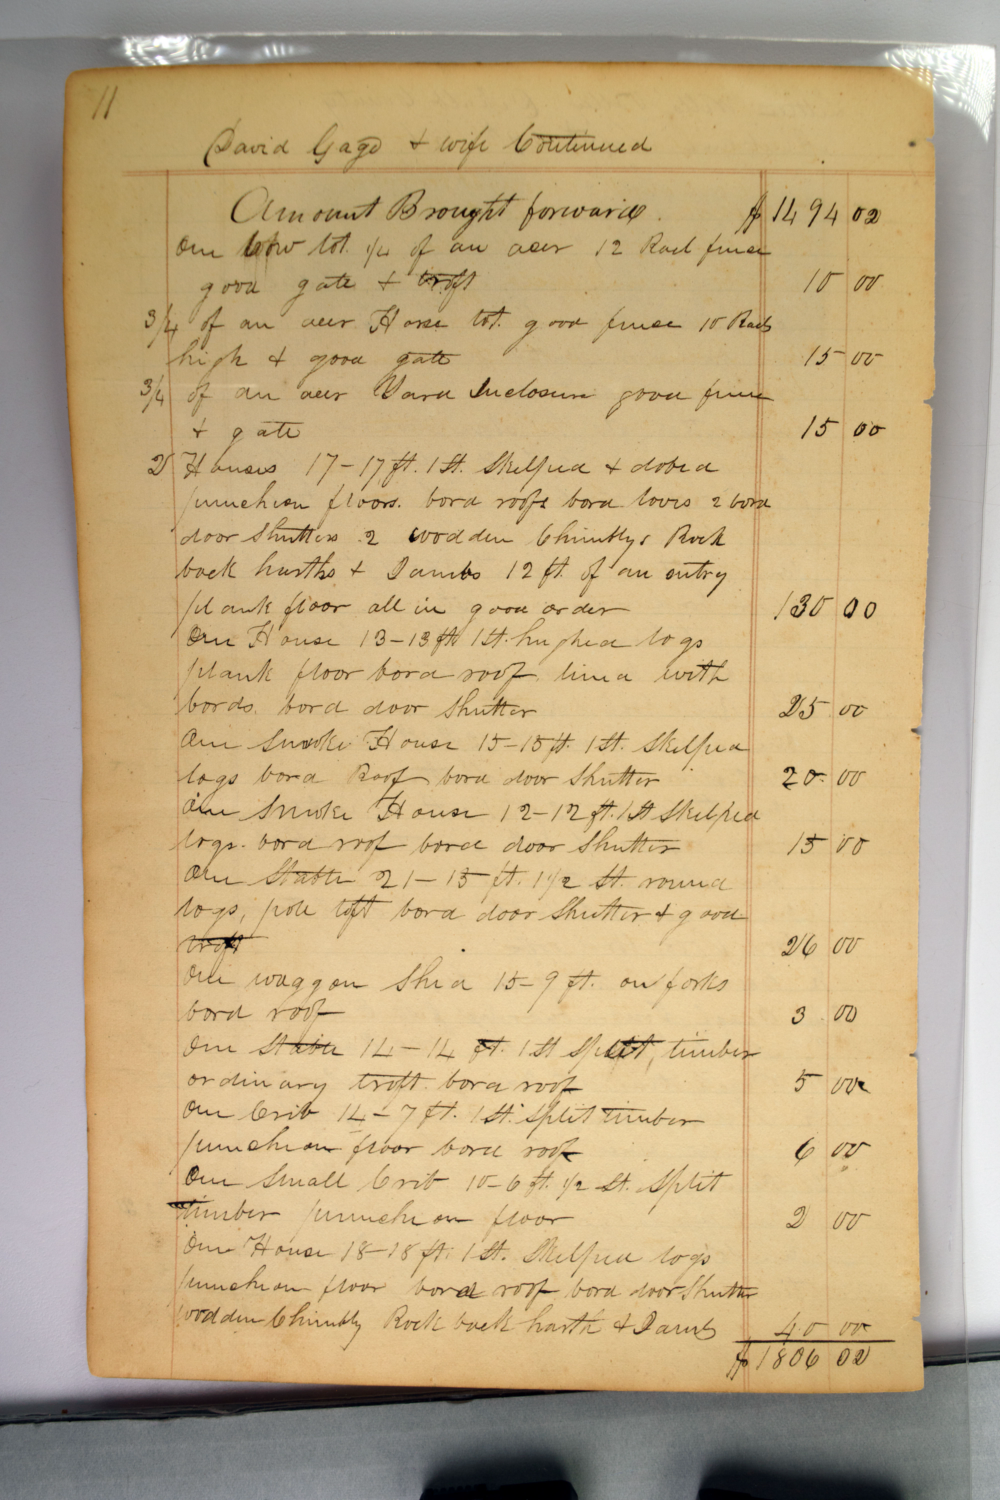 11
David Gage & wife Continued
Amount Brought forward. $ 1494 02
One Cow lot. 1/4 of an acer 12 Rail fence
good gate & troft 10 00
3/4 of an acer Horse lot. good fence 10 Rails
high & good gate 15 00
3/4 of an acer Yard Inclosure good fence
& gate 15 00
2 Houses 17-17 ft. 1 St. Skelped & dobed
puncheon floors. bord roofs bord loves 2 bord
door Shutters 2 wodden Chimblys Rock
back harths & Jambs 12 ft. of an entry
plank floor all in good order 130 00
One House 13-13 ft 1 St. hughed logs
plank floor bord roof. lined with
bords. bord door Shutter 25 00
One Smoke House 15-15 ft. 1 St. Skelped
logs bord Roof bord door Shutter 20 00
One Smoke House 12-12 ft. 1 St Skelped
logs. bord roof bord door Shutter 15 00
One Stable 21-15 ft. 1 1/2 St. round
logs, pole loft bord door Shutter & good
troft 26 00
One waggon Shed 15-9 ft. on forks
bord roof 3 00
One Stable 14-14 ft. 1 St split, timber
ordinary troft. bord roof 5 00
One Crib 14-7 ft. 1 St. Split timber
puncheon floor bord roof 6 00
One Small Crib 10-6 ft. 1/2 St. Split
timber puncheon floor 2 00
One House 18-18 ft. 1 St. Skelped logs
puncheon floor bord roof bord door Shutter
wodden Chimbly Rock back harth & Jambs 40 00
$ 1806 02